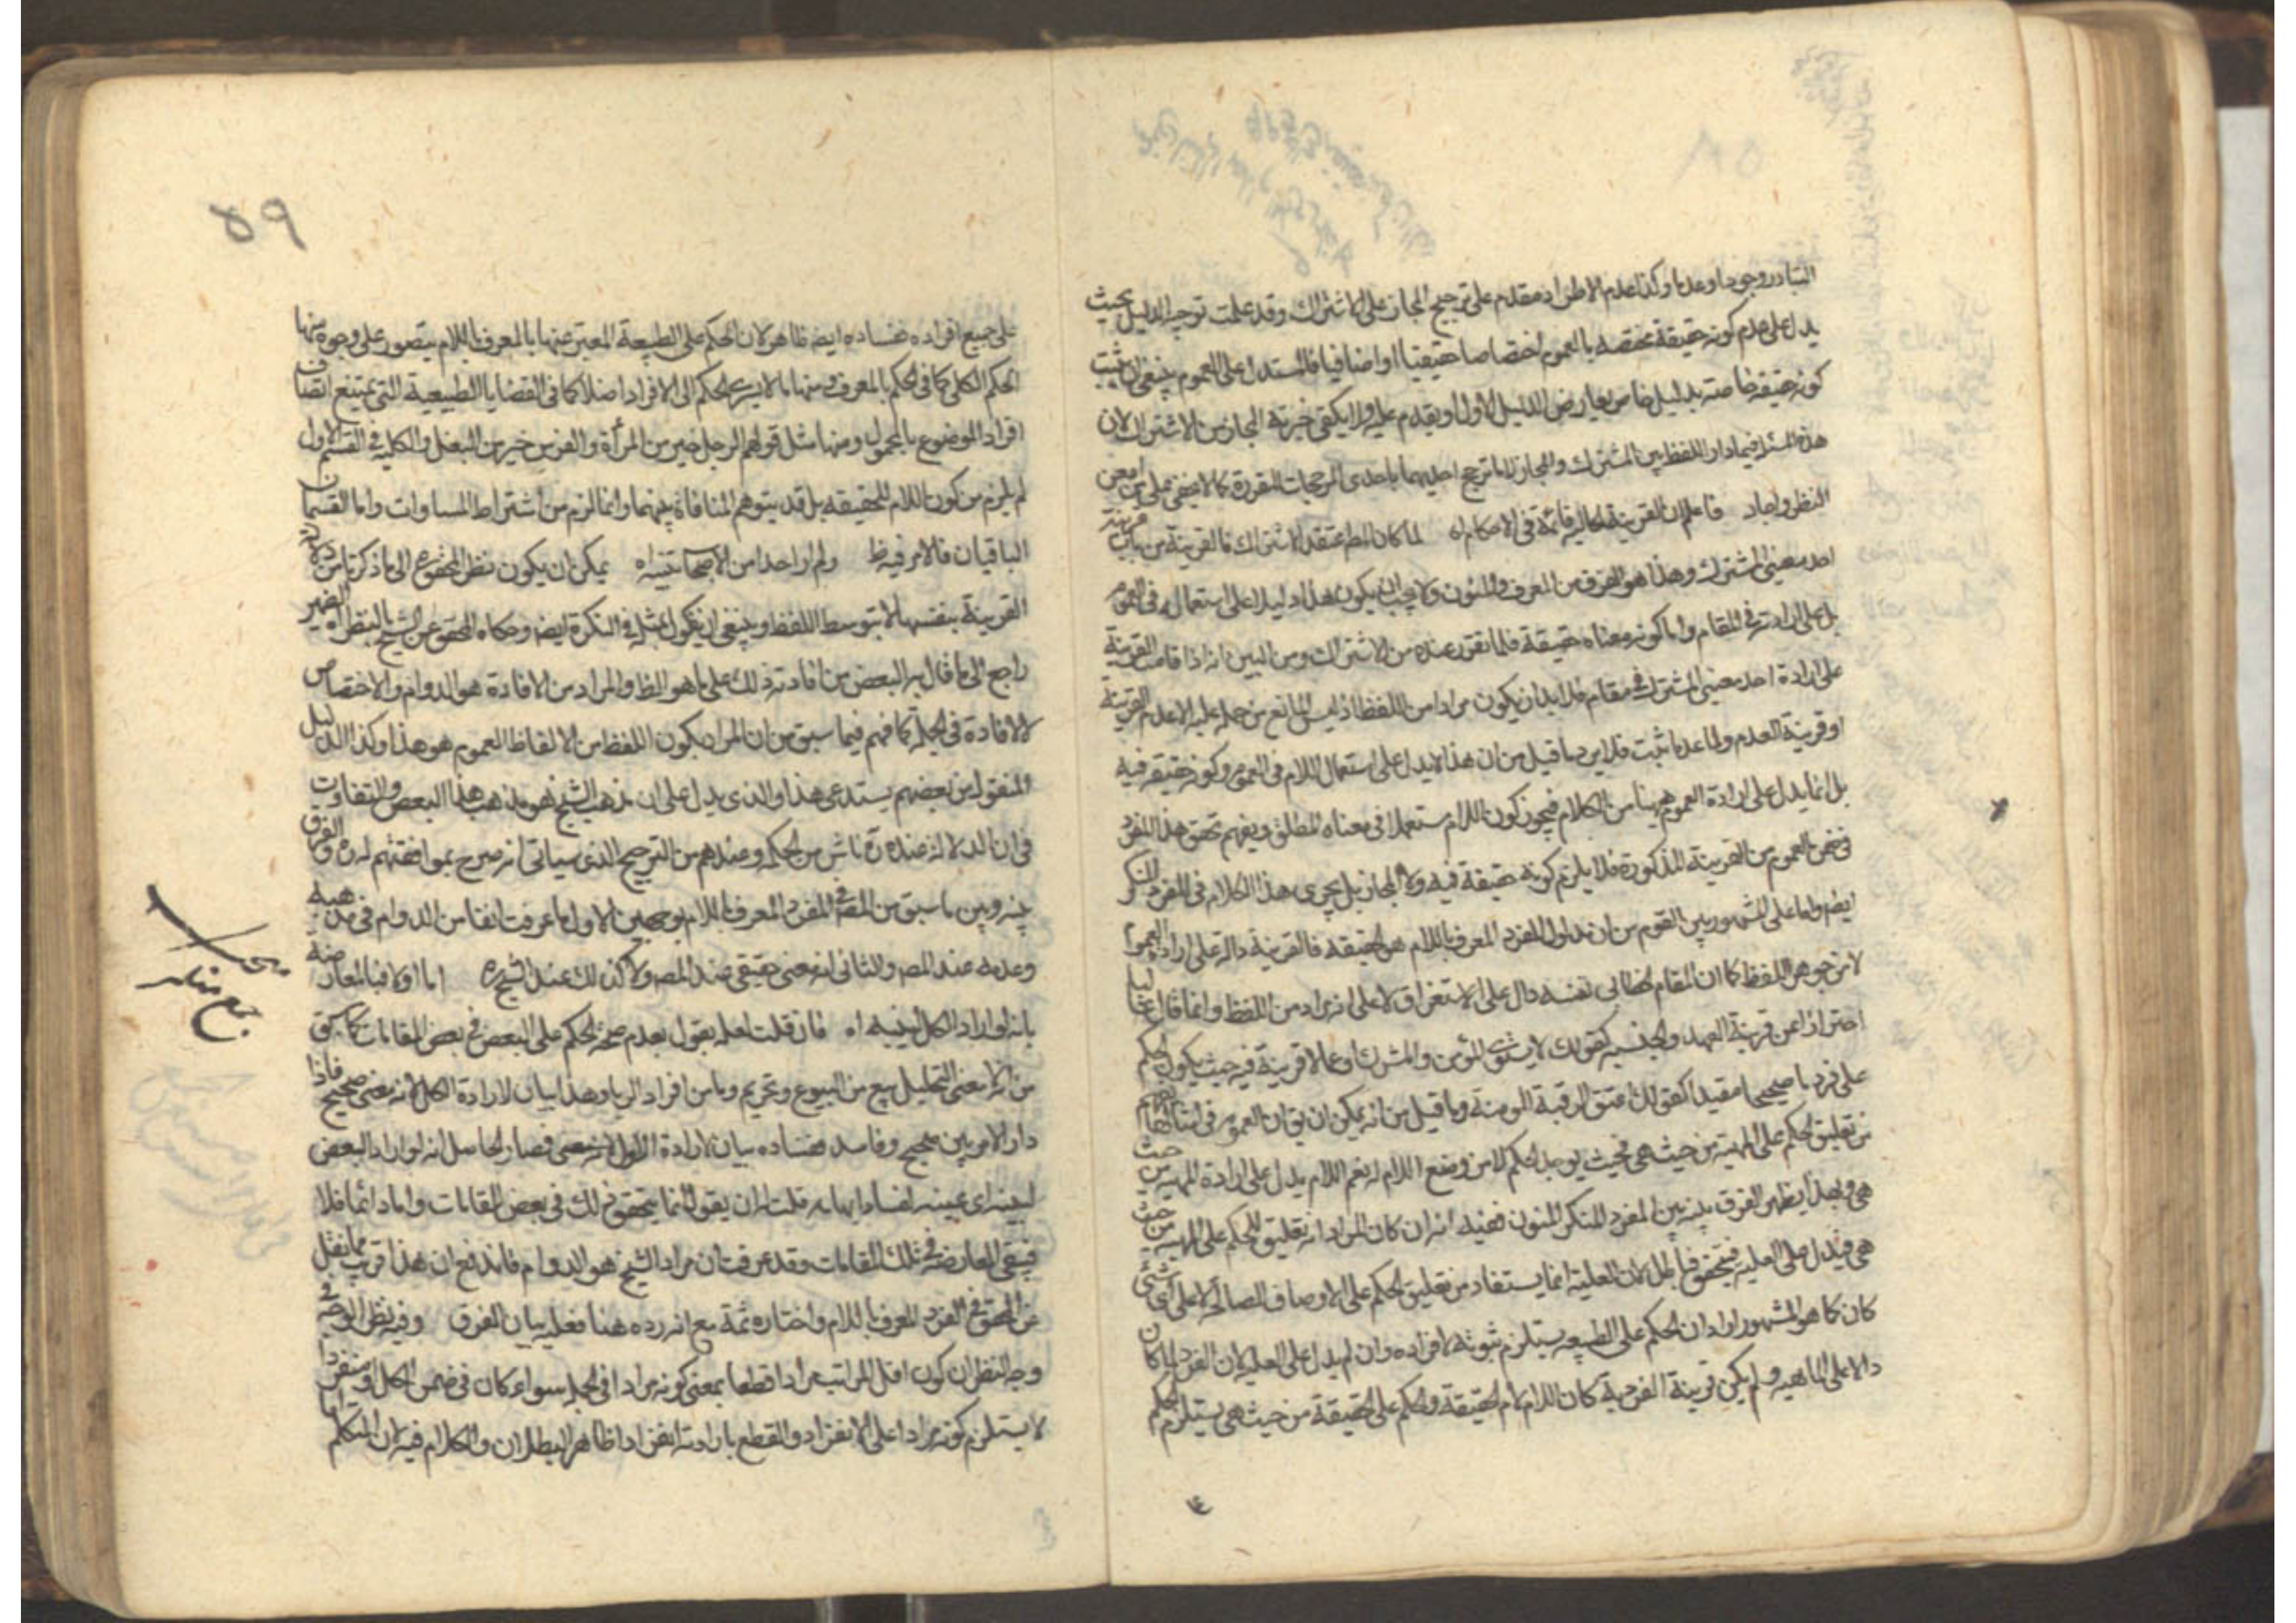 التبادر وجودا وعدما وكذا عدم الاطراد مقدم على ترجيح المجاز على الاشتراك وقد علمت توجيه الدليل بحيث
يدل على عدم كونه حقيقة مختصه بالعموم اختصاصا حقيقيا او اضافيا فالمستدل على العموم ينبغي ان يثبت
كونه حقيقه خاصة بدليل خاص يعارض الدليل الاول او يقدم عليه ولا يكفي خيرية المجاز من الاشتراك لان
هذه المسئلة فيما دار اللفظ بين المشترك والمجاز اذا ترجح احديهما باحدى المرجحات المقررة كما لا يخفى على من امعن
النظر واجاد فاعلم ان القرينة الحاليه قائمة في الاحكام اه لما كان المصـ معتقد الاشتراك فالقرينة من باب قرينة
احد معنيي المشترك وهذا هو الفرق من المعرف والمنون ولا يجب ان يكون هذا دليلا على استعماله في العموم
بل على ارادته في المقام واما كونه معناه حقيقة فلما تقرر عنده من الاشتراك ومن البين انه اذا قامت القرينة
على ارادة احد معنيي المشترك في مقام فلا بد ان يكون مرادا من اللفظ اذ ليس المانع من حمله عليه الا عدم القرينة
او قرينة العدم ولما عدما ثبت فلا يرد ما قيل من ان هذا لا يدل على استعمال اللام في العموم وكونه حقيقه فيه
بل انما يدل على ارادة العموم ههنا من الكلام فيجوز كون اللام مستعملا في معناه المطلق ويفهم تحقق هذا المفرد
في ضمن العموم من القرينة المذكورة فلا يلزم كونه حقيقة فيه ولا المجاز بل يجري هذا الكلام في المفرد المنكر
ايضـ واما على المشهور بين القوم من ان مدلول المفرد المعرف باللام هو الحقيقه فالقرينة دالة على ارادة العموم
لا من جوهر اللفظ كما ان المقام الخطابي نفسه دال على الاستغراق لا على انه يراد من اللفظ وانما قال غالبا
احترازا عن قرينة العهد والجنسيه كقولك لا يشترى المؤمن والمشرك وعما لا قرينة فيه حيث يكون الحكم
على فرد ما صحيحا مفيدا كقولك اعتق الرقبة المومنة وما قيل من انه يمكن ان يقـ ان العموم في امثالها انما يفهم
من تعليق الحكم على المهية من حيث هي فحيث يوجد الحكم لا من وضع اللام له نعم اللام يدل على ارادة المهية من حيث
هي وبهذا يظهر الفرق بينه وبين المفرد المنكر المنون ففيه انه ان كان المراد انه تعليق للحكم على المهية من حيث
هي فيدل على العليه فيتحقق فباطل لان العلية انما يستفاد من تعليق الحكم على الاوصاف الصالحة لا على اي شئ
كان كما هو المشهور او اراد ان الحكم على الطبيعه يستلزم ثبوته لافراده وان لم يدل على العلية لان الفرد لما كان
دالا على الماهيه ولم يكن قرينة الفردية كان اللام لام الحقيقة والحكم على الحقيقة من حيث هي يستلزم الحكم
٥٩
على جميع افراده ففساده ايضـ ظاهر لان الحكم على الطبيعة المعتبر عنها بالمعرف باللام يتصور على وجوه منها
الحكم الكلي كما في الحكم بالمعرف ومنها ما لا يسرى الحكم الى الافراد اصلا كما في القضايا الطبيعية التي يمتنع اتصاف
افراد الموضوع بالمحمول ومنها مثل قولهم الرجل خير من المرأة والفرس خير من البغل والكليه في القسم الاول
لم يلزم من كون اللام للحقيقه بل قد يتوهم المنافاة بينهما وانما لزم من اشتراط المساوات واما القسمان
الباقيان فالامر فيه ظـ ولم ار احدا من الاصحاب تنبه اه يمكن ان يكون نظر المحقق ره الى ما ذكرنا من دلالة
القرينة بنفسها لا بتوسط اللفظ وينبغي ان يقول بمثله في النكرة ايضـ وحكاه المحقق عن الشيخ بالنظر اه الضمير
راجع الى ما قال به البعض من افادته ذلك على ما هو الظـ والمراد من الافادة هو الدوام والاختصاص
لا الافادة في الجملة كما فهم فيما سبق من ان المراد بكون اللفظ من الالفاظ العموم هو هذا وكذا الدليل
المنقول من بعضهم يستدعي هذا والذي يدل على ان مذهب الشيخ هو مذهب هذا البعض والتفاوت
في ان الدلالة عنده ره ناش من الحكم وعندهم من الترجيح الذي سياتي انه صرح بموافقتهم له ره والفرق
بينه وبين ما سبق من المصـ في المفرد المعرف باللام بوجهين الاول ما عرفت انفا من الدوام في مذهبه
وعدمه عند المصـ والثاني انه معنى حقيقي عند المصـ ولا كذلك عند الشيخ ره اما اولا فبالمعارضة
بانه لو اراد الكل لبينه اه فان قلت لعله يقول بعدم صحة الحكم على البعض في بعض المقامات كما سبق
من انه لا معنى لتحليل بيع من البيوع وتحريم ربا من افراد الربا وهذا بيان لارادة الكل لانه معنى صحيح فاذا
دار الامر بين صحيح وفاسد ففساده بيان لارادة الاول فصار الحاصل انه لو اراد البعض
لبينه اي عينه لفساد ابهامه قلت له ان يقول انما يتحقق ذلك في بعض المقامات واما دائما فلا
فيبقى المعارضه في تلك المقامات وقد عرفت ان مراد الشيخ هو الدوام فاندفع ان هذا قريب مما نقل
عن المحقق في المفرد المعرف باللام واختاره ثمة مع انه رده هنا فعليه بيان الفرق وفيه نظر الوجه في
وجه النظر ان كون اقل المراتب مرادا قطعا بمعنى كونه مرادا في الجملة سواء كان في ضمن الكل او منفردا
لا يستلزم كونه مرادا على الانفراد والقطع بارادته انفرادا ظاهر البطلان والكلام فيه ان المتكلم اما
جمع منكر